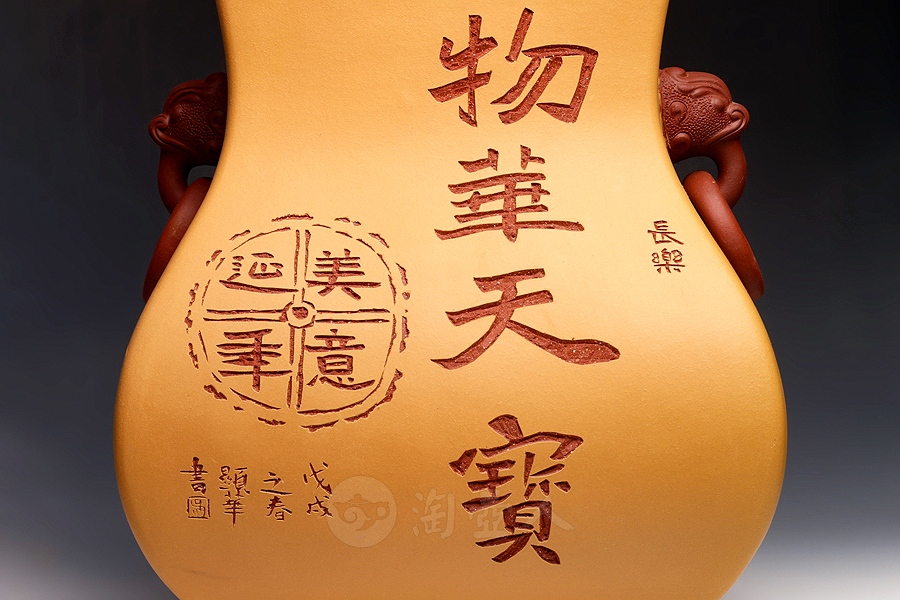 長樂
物華天寶
美意
延年
戊戌
之春
顯華
書
淘壺人